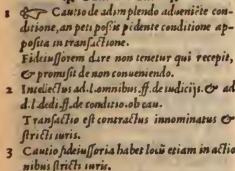 1 ☞ Cautio de adimplendo adueniẽte con-
ditione, an peti poßis pidente conditione ap-
posita in transactione.
Fideiussorem dare non tenetur qui recepit,
& promisit de non conueniendo.
2 Intellectus ad.l.omnibus.ff.de iudicijs.& ad
d.l.dedi.ff.de conditio.ob cau.
Transactio est contractus innominatus &
stricti iuris.
3 Cautio fideiussoria habet locũ etiam in actio
nibus stricti iuris.